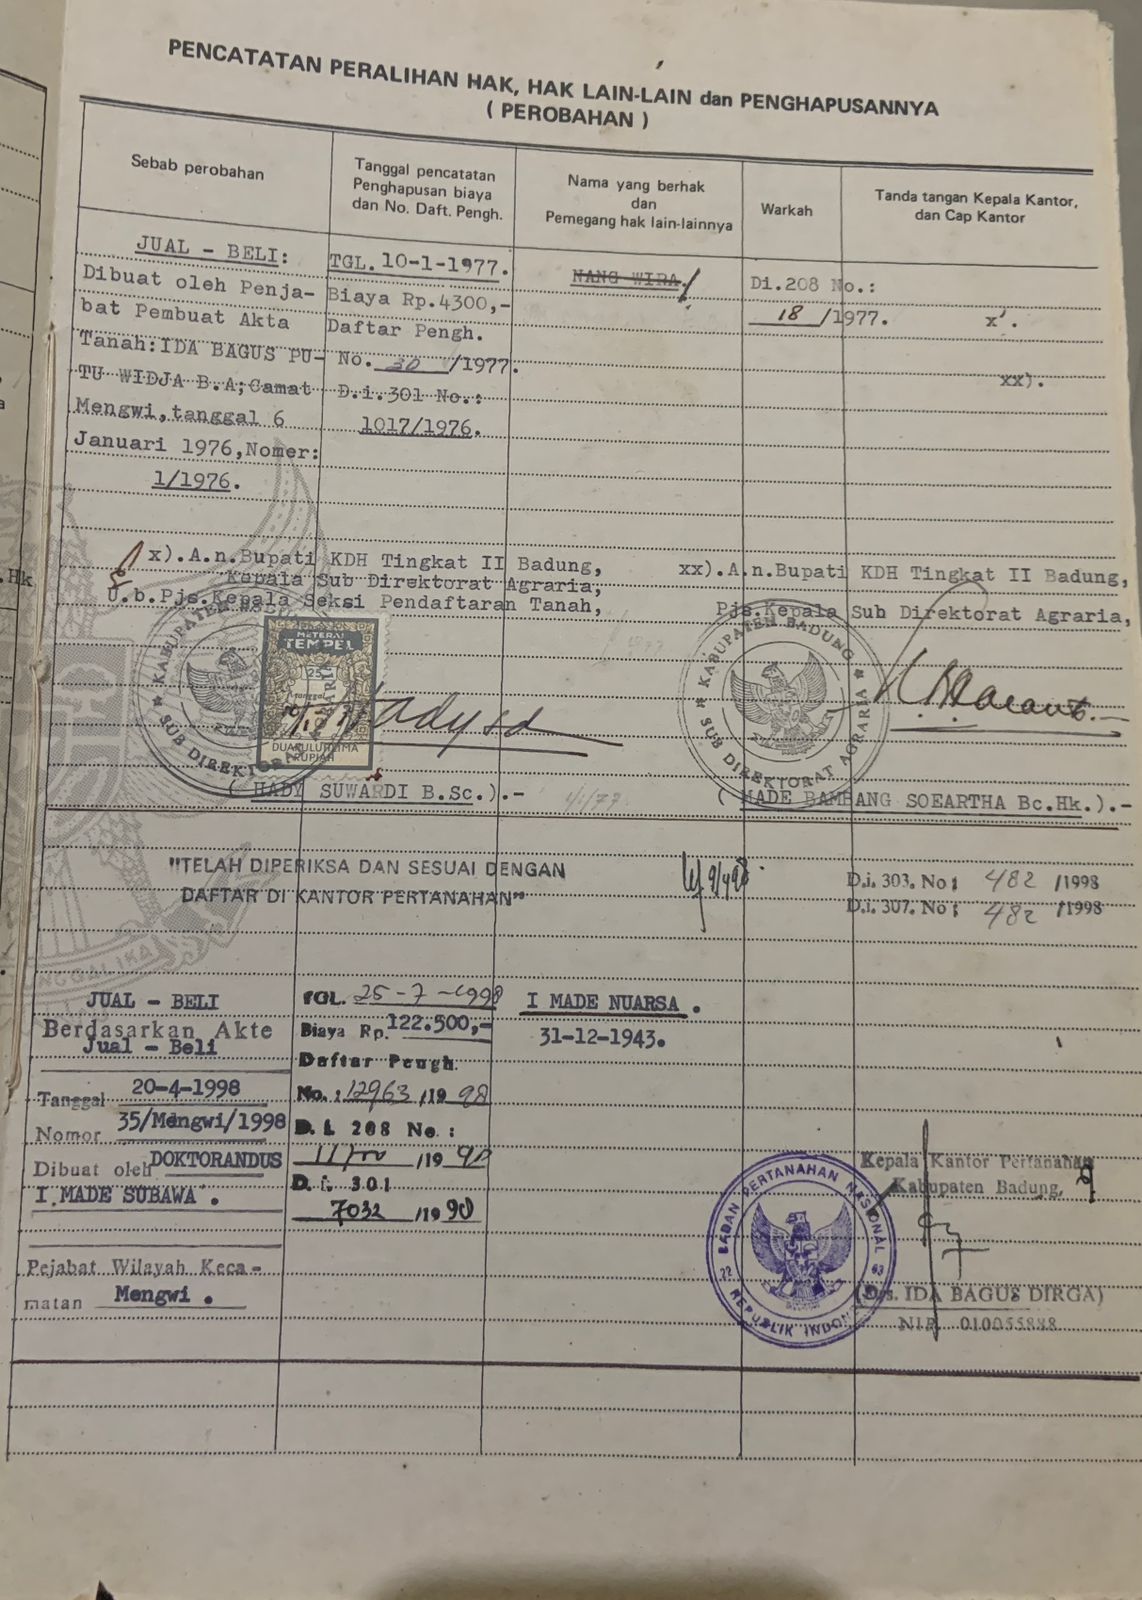 PENCATATAN PERALIHAN HAK, HAK LAIN-LAIN dan PENGHAPUSANNYA
( PEROBAHAN )
Sebab perobahan
Tanggal pencatatan
Penghapusan biaya
dan No. Daft. Pengh.
Nama yang berhak
dan
Pemegang hak lain-lainnya
Warkah
Tanda tangan Kepala Kantor,
dan Cap Kantor
JUAL - BELI:
Dibuat oleh Penja-
bat Pembuat Akta
Tanah:IDA BAGUS PU-
TU WIDJA B.A;Camat
Mengwi,tanggal 6
Januari 1976,Nomer:
1/1976.
TGL. 10-1-1977.
Biaya Rp.4300,-
Daftar Pengh.
No. 30 /1977.
D.i.301 No.:
1017/1976.
NANG WIRA.
Di.208 No.:
18 /1977.
x).
xx).
x).A.n.Bupati KDH Tingkat II Badung,
Kepala Sub Direktorat Agraria;
U.b.Pjs.Kepala Seksi Pendaftaran Tanah,
xx).A.n.Bupati KDH Tingkat II Badung,
Pjs.Kepala Sub Direktorat Agraria,
KABUPATEN BADUNG
SUB DIREKTORAT AGRARIA
METERAI
TEMPEL
25
Tanggal
DUAPULUH LIMA
RUPIAH
KABUPATEN BADUNG
SUB DIREKTORAT AGRARIA
( HADY SUWARDI B.Sc.).-
( MADE BAMBANG SOEARTHA Bc.Hk.).-
"TELAH DIPERIKSA DAN SESUAI DENGAN
DAFTAR DI KANTOR PERTANAHAN"
D.i. 303. No : 482 /1998
D.i. 307. No : 482 /1998
JUAL - BELI
Berdasarkan Akte
Jual - Beli
Tanggal 20-4-1998
Nomor 35/Mengwi/1998
Dibuat oleh DOKTORANDUS
I MADE SUBAWA .
Pejabat Wilayah Keca-
matan Mengwi .
TGL. 25-7-1998
Biaya Rp. 122.500,-
Daftar Pengh.
No. : 12963 /19 98
D. i. 208 No :
/19 98
D. i. 301
7032 /19 98
I MADE NUARSA .
31-12-1943.
Kepala Kantor Pertanahan
Kabupaten Badung,
BADAN PERTANAHAN NASIONAL
REPUBLIK INDONESIA
(Drs. IDA BAGUS DIRGA)
NIP. 010055888